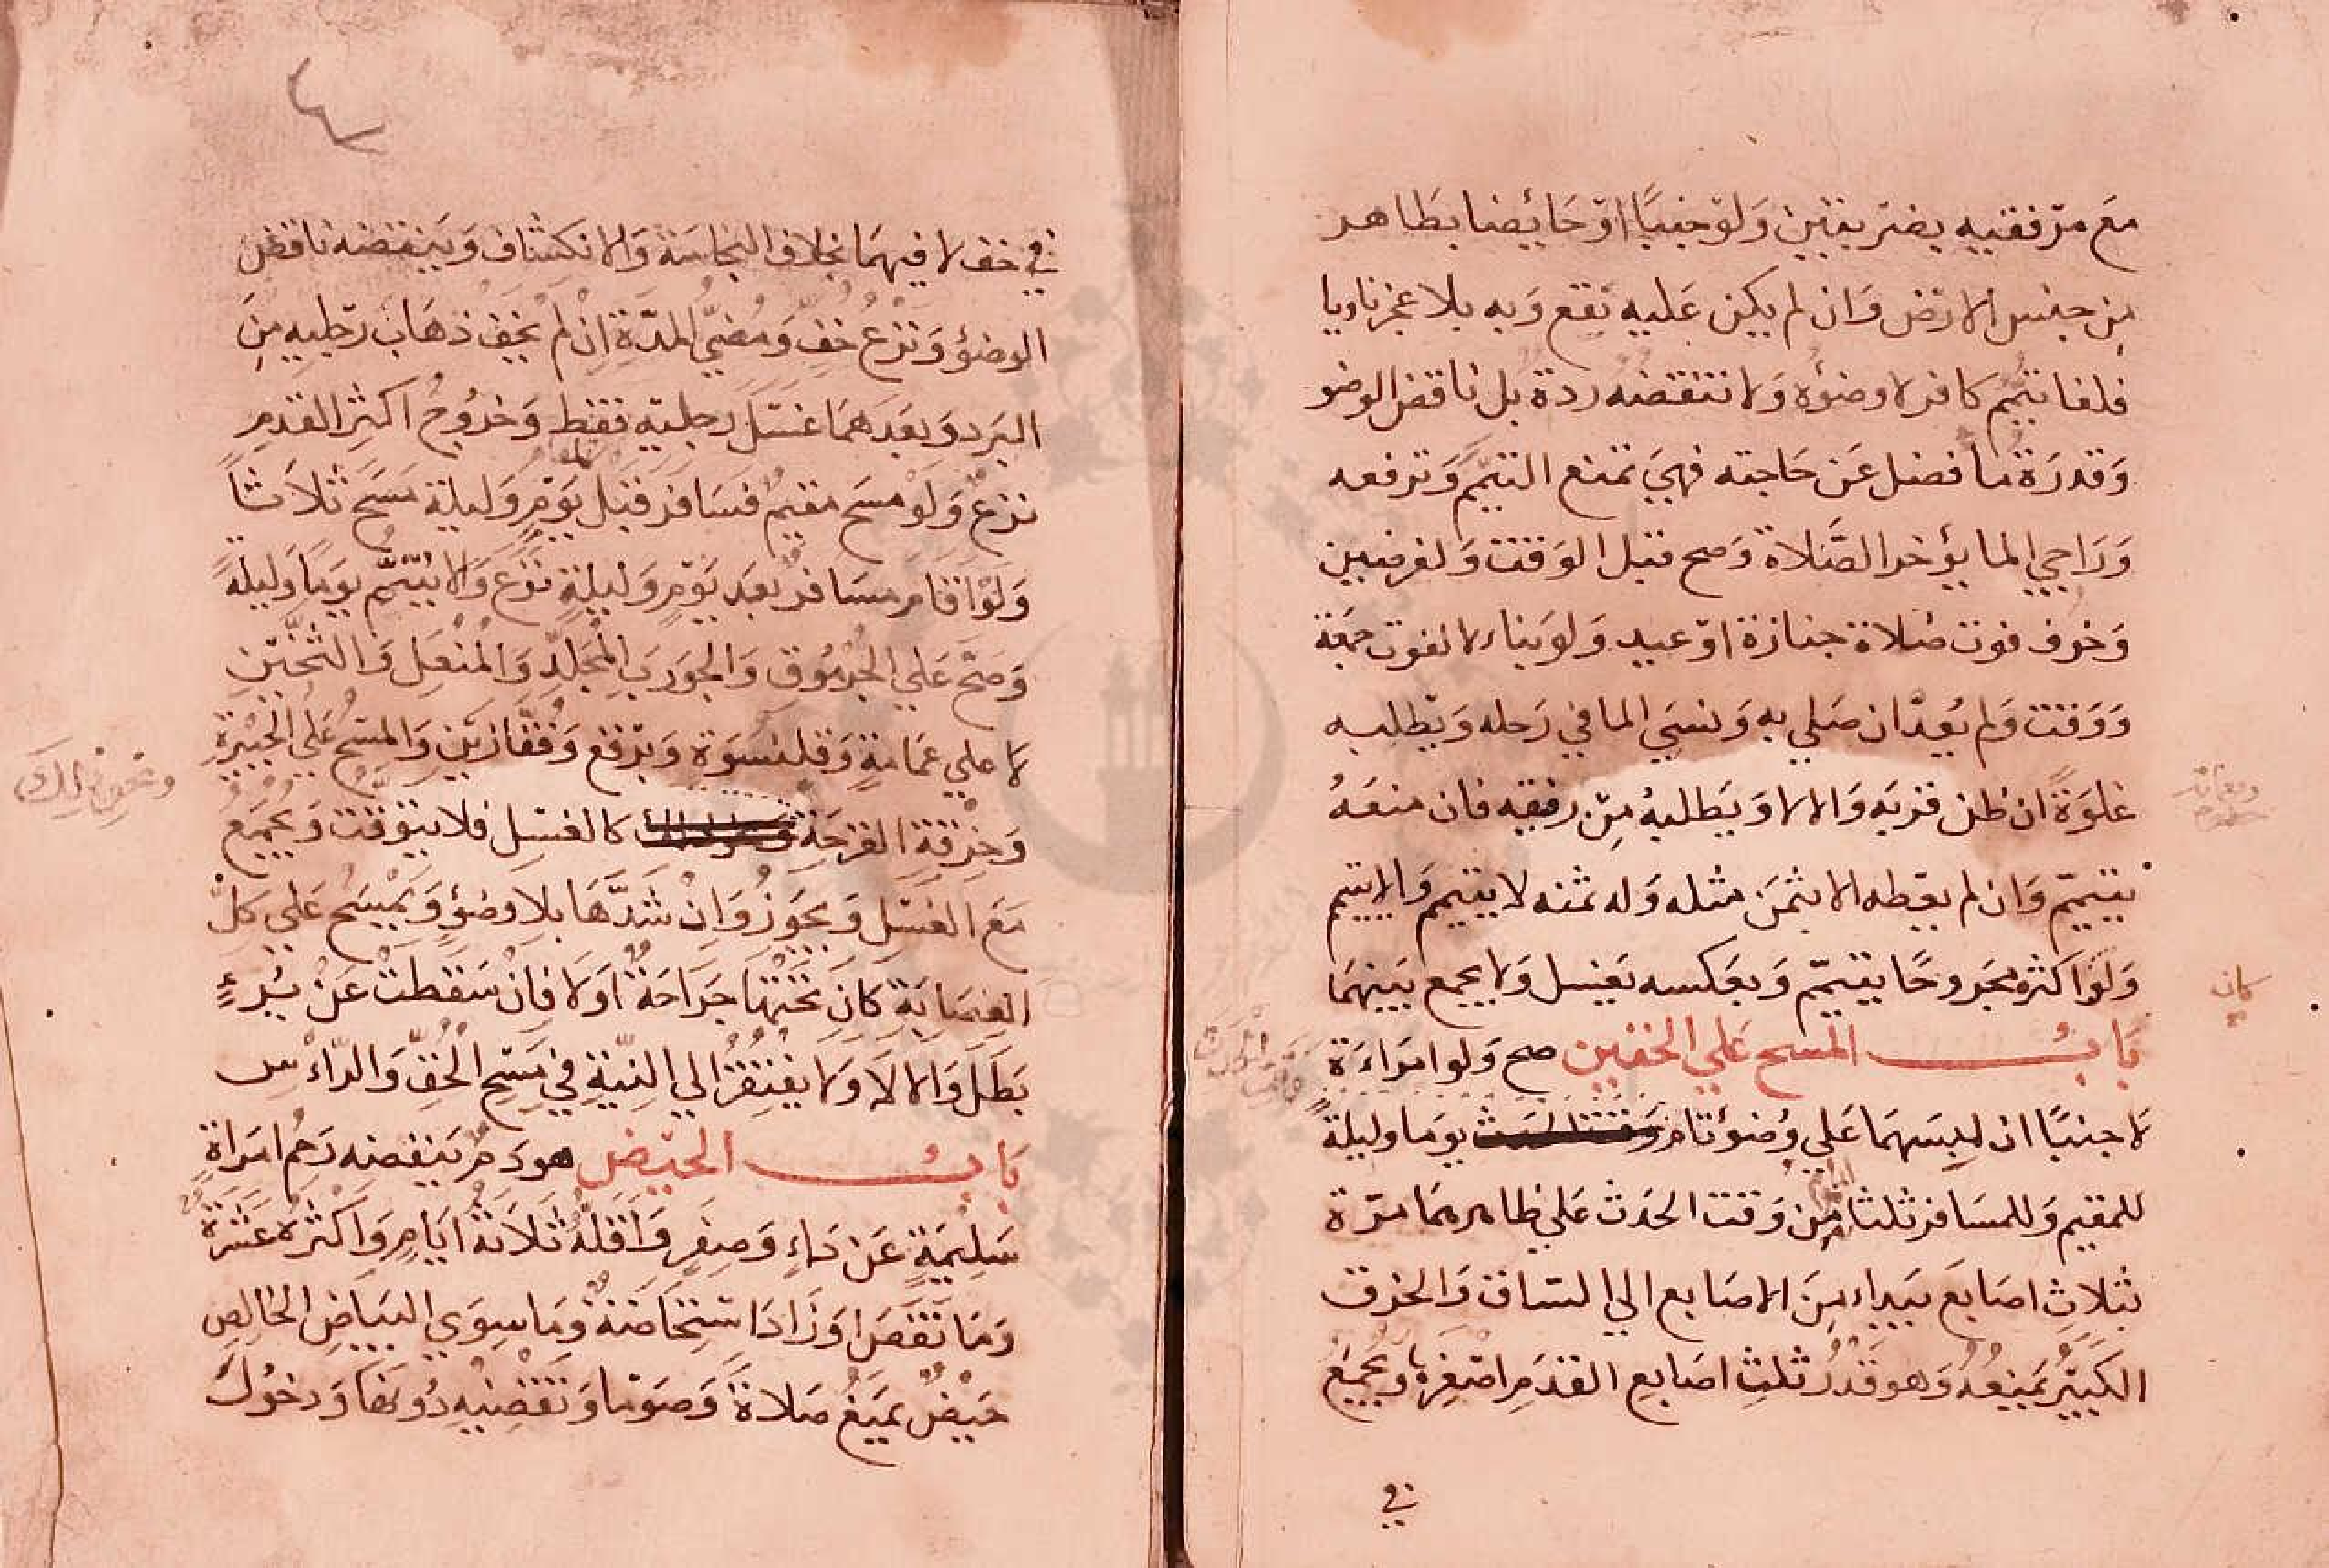 مَع مرْفقيه بضربتين وَلوْ جنبًا اوْ حَائضا بطَاهر
من جنس الارض وَان لم يكن عَليه نقع وَبه بلا عجز ناويا
فلغا تيمم كافر لا وضؤه وَلا تنقضه ردة بل ناقض الوضو
وَقدرَة ما فضل عَن حَاجته فهي تمنع التيمم وَترفعه
وَرَاجي الما يؤخر الصَّلاة وَصح قبل الوَقت وَلفرضين
وَخوف فوت صَلاة جنازة اوْ عيد وَلو بناء لا لفوت جمعة
وَوَقت وَلم يُعدْ ان صَلي به وَنسَي الما في رَحله وَيطلبه
غلوَةً ان ظن قربَه وَالا لا وَيَطلبهُ مِن رفيقه فان منعَهُ
يتيمم وَان لم يعطه الا بثمَن مثله وَله ثمنه لا يتيمم وَالا يتيم
وَلوْ اكثره مجروحًا يتيمّم وَبعكسه يَغسل وَلا يجمع بَينهمَا
بَابُ المسَح عَلي الخفين صح وَلو امرَاءَة
لا جنبًا ان لبسَهمَا عَلي وُضؤ تام يومَا وليلةً
للمقيم وَللمسَافر ثلثا من وَقت الحَدث عَلي ظاهرهمَا مرّة
بثلاثِ اصَابعَ يَبداء مِنَ الاصَابع الي السَّاق وَالخرق
الكَبيْرُ يَمنِعُهُ وَهو قَدْرُ ثلثِ اصَابع القدَمِ اصْغرِهَا وَيجْمَعُ
في
كان
في خف لا فيهمَا بخلاف النجاسَة وَالانكشاف وَيَنقضه ناقض
الوضؤ وَنزْعُ خفٍّ وَمُضيُّ المدّةِ اِنْ لم يَخَفْ ذهَابَ رجْليه مِنَ
البَرد وَبعَدهمَا غسَل رجليْه فقط وَخرُوجُ اكثرِ القدَمِ
نزعٌ وَلوْ مسَح مقيمٌ فسَافرَ قبَل يوَمٍ وَليلةٍ مسَحَ ثلَاثاً
وَلوْ اقَامَ مسَافرٌ بعَد يَوْمٍ وَليلةٍ نزعَ وَالا يُتمّمُ يوَمَا وَليلةً
وَصَحَّ عَلي الجُرْمُوقِ وَالجوَرَبِ المُجَلّدِ وَالمُنْعَلِ وَالثخينِ
لَا علي عمَامةٍ وَقلنسُوَة وَبرْقع وَقُفّازَيْنِ وَالمسْحُ عَلي الجَبِيْرةِ
وَخِرْقةِ القرْحَةِ كالغسْلِ فلا يتوَقت وَيُجْمَعُ
مَعَ الغسْل وَيجُوزُ وَانْ شدّهَا بلا وضؤٍ وَيمْسَحُ عَلي كلِّ
العِصَابَةِ كَانَ تحْتهَا جرَاحَةٌ اوَلا فانْ سَقطتْ عَنْ بُرْءٍ
بَطَلَ وَالا لَا وَلا يفْتقِرُ الي النِّيّةِ في مَسْحِ الخُفِّ وَالرّاْسِ
بَابُ الحَيْض هو دَمٌ يَنفضه رَحِمُ امرَاةٍ
سَليْمَةٍ عَنْ دَاءٍ وَصِغَرٍ وَاقَلُّهُ ثلَاثةُ ايّامٍ وَاكثرُهُ عَشَرَةٌ
وَمَا نقَصَ اوْ زَادَ اسْتحَاضَةٌ وَمَا سِوَي البَيَاضِ الخالِصِ
حَيْضٌ يمنَعُ صَلاةً وَصوْمًا وَتقضِيْهِ دُونهَا وَدخوْلَ
ونحو ذلك